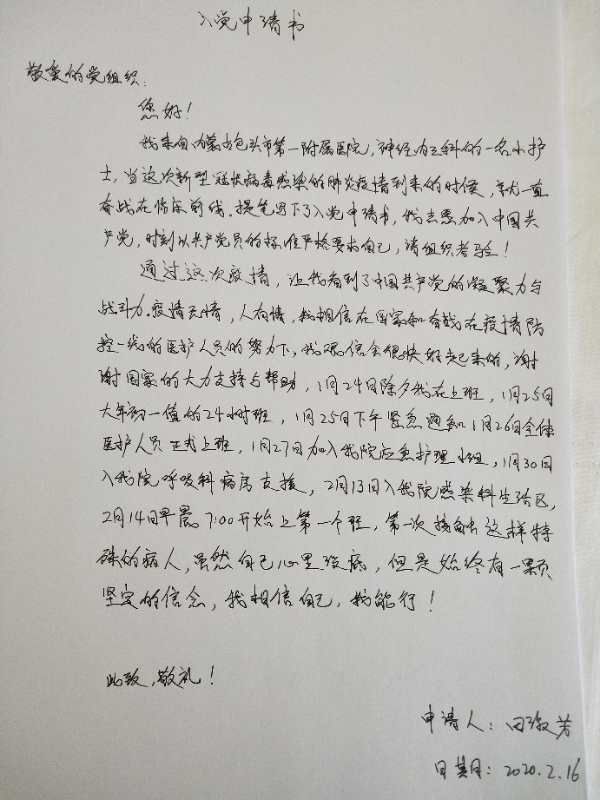 入党申请书
敬爱的党组织：
您好！
我来自内蒙古包头市第一附属医院，神经内三科的一名小护
士，当这次新型冠状病毒感染的肺炎疫情到来的时候，我一直
奋战在临床前线。提笔写下了入党申请书，我志愿加入中国共
产党，时刻以共产党员的标准严格要求自己，请组织考验！
通过这次疫情，让我看到了中国共产党的凝聚力与
战斗力。疫情无情，人有情，我相信在国家和奋战在疫情防
控一线的医护人员的努力下，我深信会很快好起来的，谢
谢国家的大力支持与帮助，1月24日除夕我在上班，1月25日
大年初一值的24小时班，1月25日下午紧急通知1月26日全体
医护人员正式上班，1月27日加入我院应急护理小组，1月30日
入我院呼吸科病房支援，2月13日入我院感染科生活区，
2月14日早晨7:00开始上第一个班，第一次接触这样特
殊的病人，虽然自己心里没底，但是始终有一颗
坚定的信念，我相信自己，我能行！
此致，敬礼！
申请人：田淑芳
日期：2020.2.16